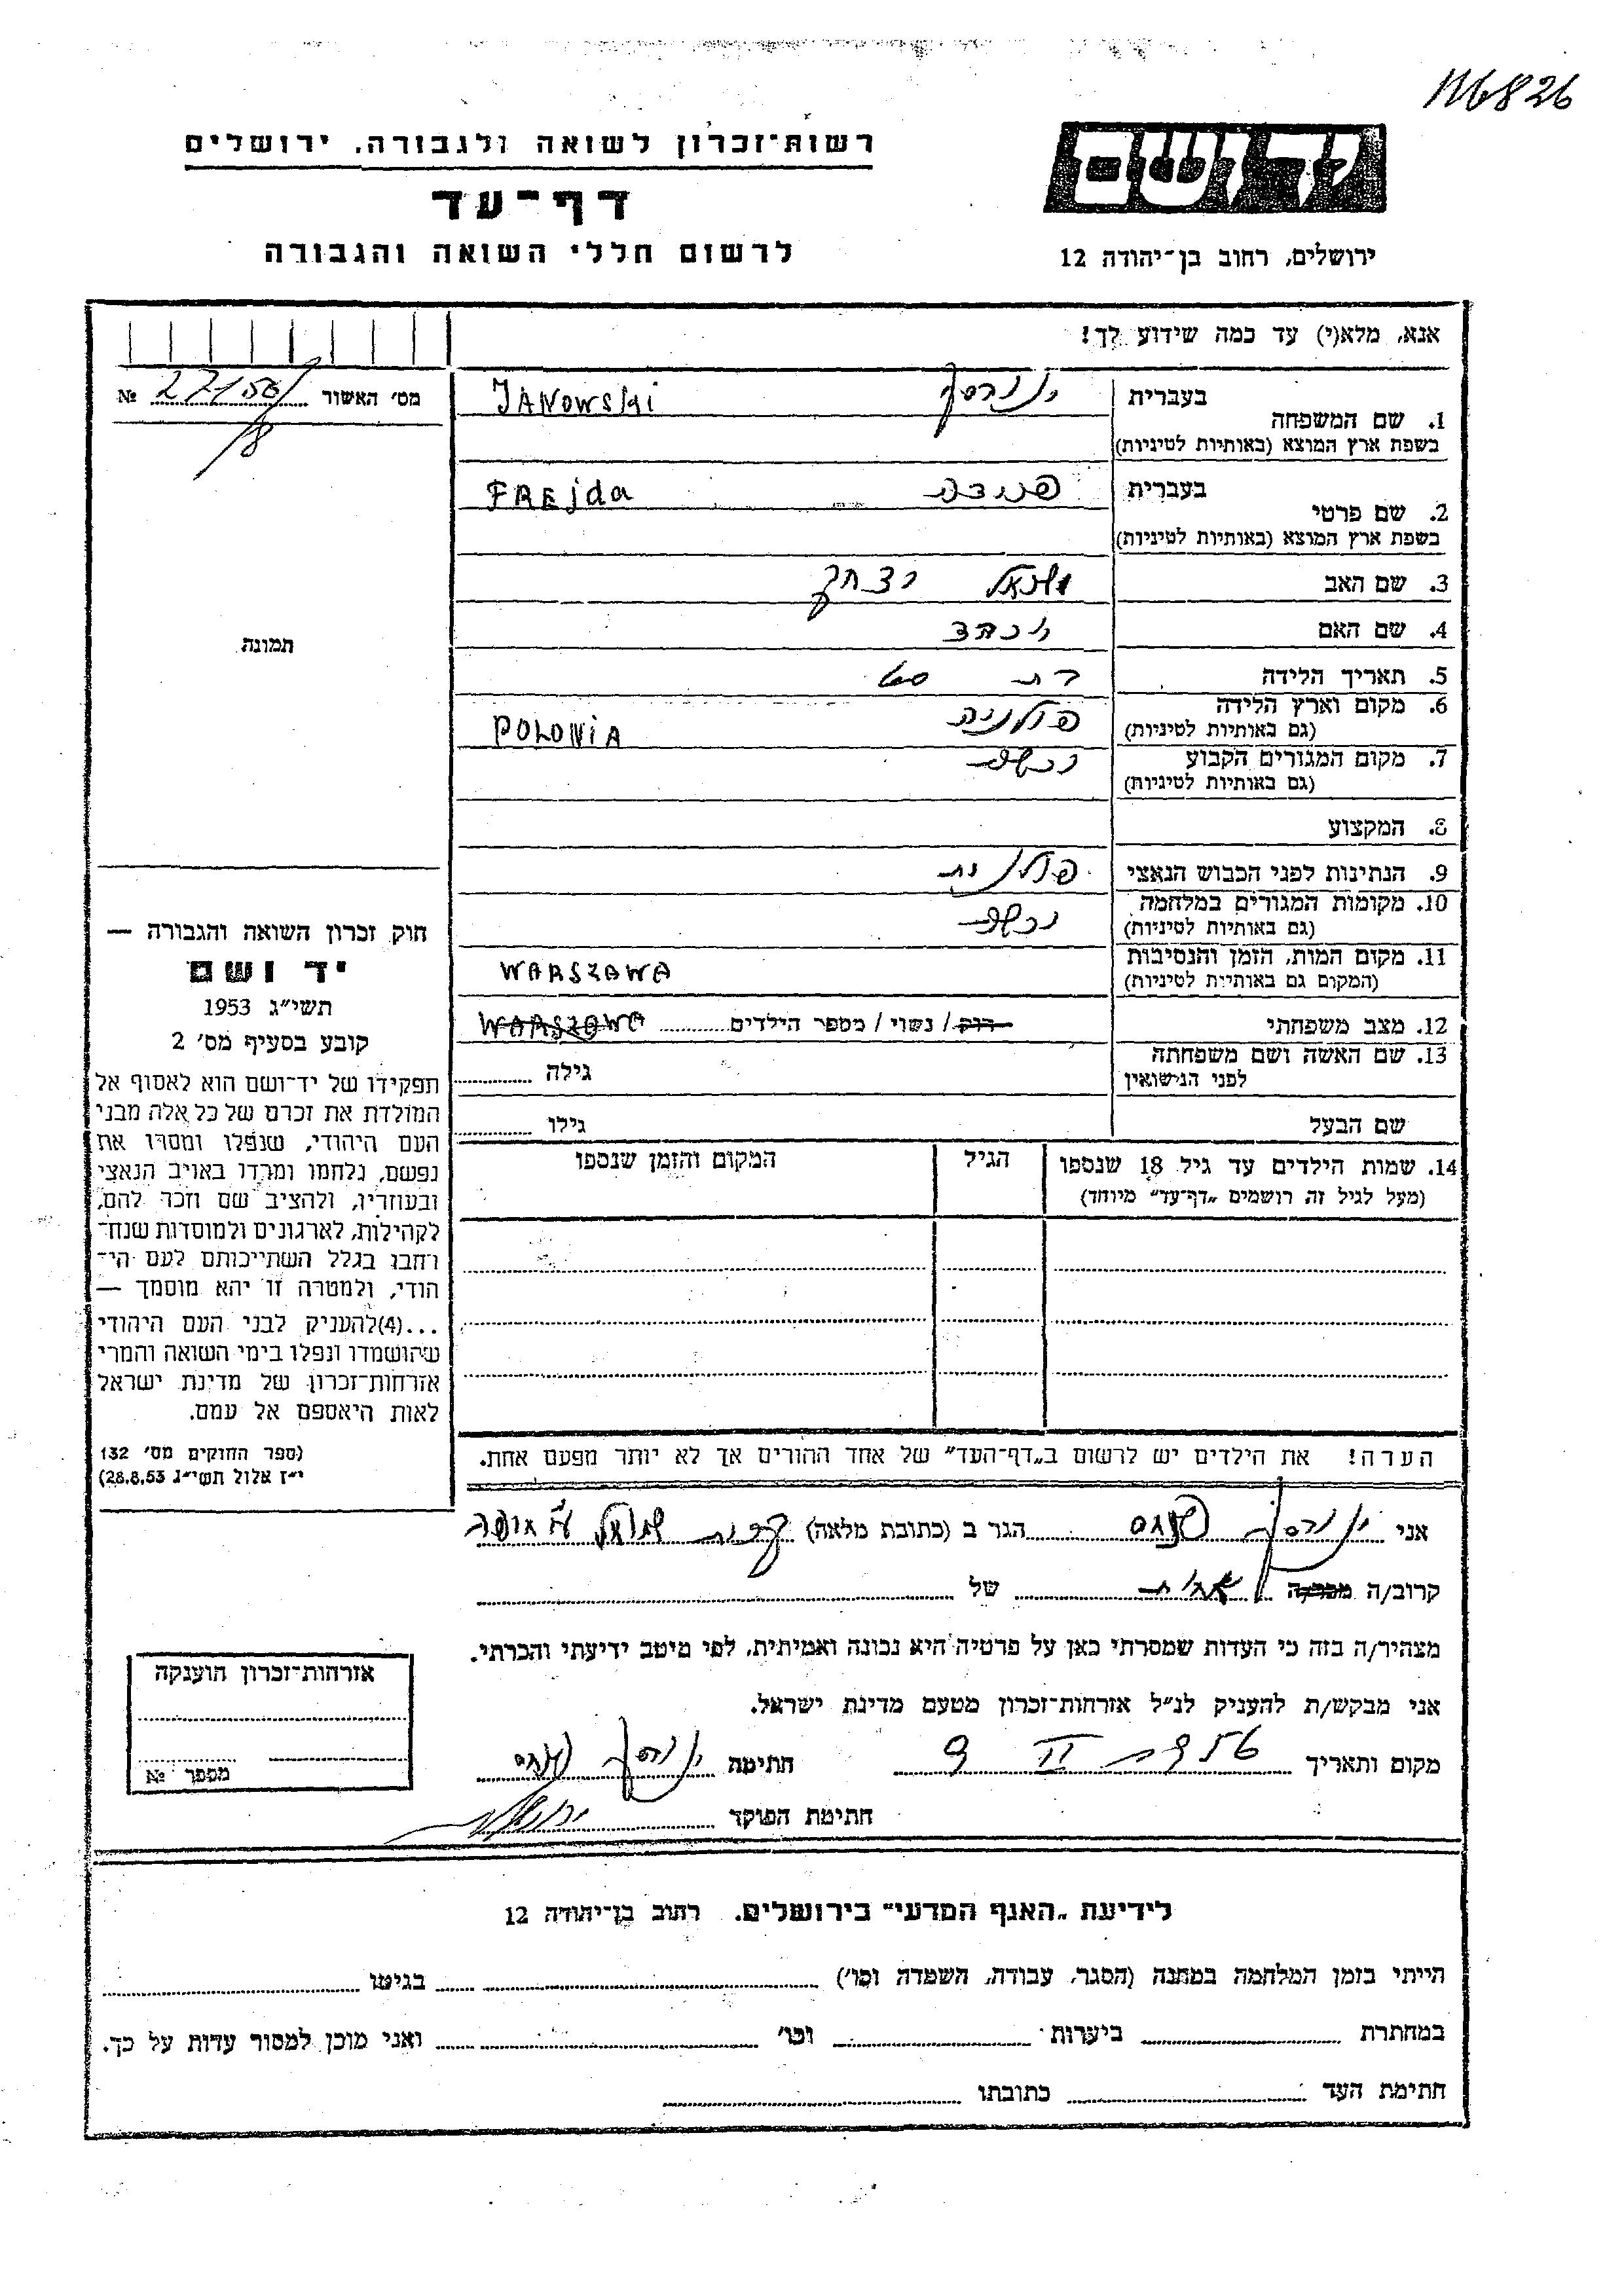 116826
רשות־זכרון לשואה ולגבורה, ירושלים
דף־עד
לרשום חללי השואה והגבורה
יד ושם
ירושלים, רחוב בן־יהודה 12
אנא, מלא(י) עד כמה שידוע לך!
מס׳ האשור №
בעברית
JANOWSKI
1. שם המשפחה
בשפת ארץ המוצא (באותיות לטיניות)
בעברית פרידה
FREjda
2. שם פרטי
בשפת ארץ המוצא (באותיות לטיניות)
3. שם האב יצחק
4. שם האם
5. תאריך הלידה בת
6. מקום וארץ הלידה פולניה POLONIA
(גם באותיות לטיניות)
7. מקום המגורים הקבוע ורשה
(גם באותיות לטיניות)
8. המקצוע
9. הנתינות לפני הכבוש הנאצי פולנית
10. מקומות המגורים במלחמה ורשה
(גם באותיות לטיניות)
11. מקום המות, הזמן והנסיבות WARSZAWA
(המקום גם באותיות לטיניות)
12. מצב משפחתי רוק / נשוי / מספר הילדים WARSZAWA
13. שם האשה ושם משפחתה
לפני הנישואין גילה
שם הבעל גילו
14. שמות הילדים עד גיל 18 שנספו הגיל המקום והזמן שנספו
(מעל לגיל זה רושמים „דף־עד״ מיוחד)
הערה! את הילדים יש לרשום ב„דף־העד״ של אחד ההורים אך לא יותר מפעם אחת.
תמונה
חוק זכרון השואה והגבורה —
יד ושם
תשי״ג 1953
קובע בסעיף מס׳ 2
תפקידו של יד־ושם הוא לאסוף אל
המולדת את זכרם של כל אלה מבני
העם היהודי, שנפלו ומסרו את
נפשם, נלחמו ומרדו באויב הנאצי
ובעוזריו, ולהציב שם וזכר להם,
לקהילות, לארגונים ולמוסדות שנח־
רבו בגלל השתייכותם לעם הי־
הודי, ולמטרה זו יהא מוסמך —
...(4)להעניק לבני העם היהודי
שהושמדו ונפלו בימי השואה והמרי
אזרחות־זכרון של מדינת ישראל
לאות היאספם אל עמם.
(ספר החוקים מס׳ 132
י״ז אלול תשי״ג 28.8.53)
אני הגר ב (כתובת מלאה)
קרוב/ה מכר/ה של
מצהיר/ה בזה כי העדות שמסרתי כאן על פרטיה היא נכונה ואמיתית, לפי מיטב ידיעתי והכרתי.
אני מבקש/ת להעניק לנ״ל אזרחות־זכרון מטעם מדינת ישראל.
מקום ותאריך חתימה
חתימת הפוקד
אזרחות־זכרון הוענקה
מספר №
לידיעת „האגף המדעי״ בירושלים, רחוב בן־יהודה 12
הייתי בזמן המלחמה במחנה (הסגר, עבודה, השמדה וכו׳) בגיטו
במחתרת ביערות וכו׳ ואני מוכן למסור עדות על כך.
חתימת העד כתובתו